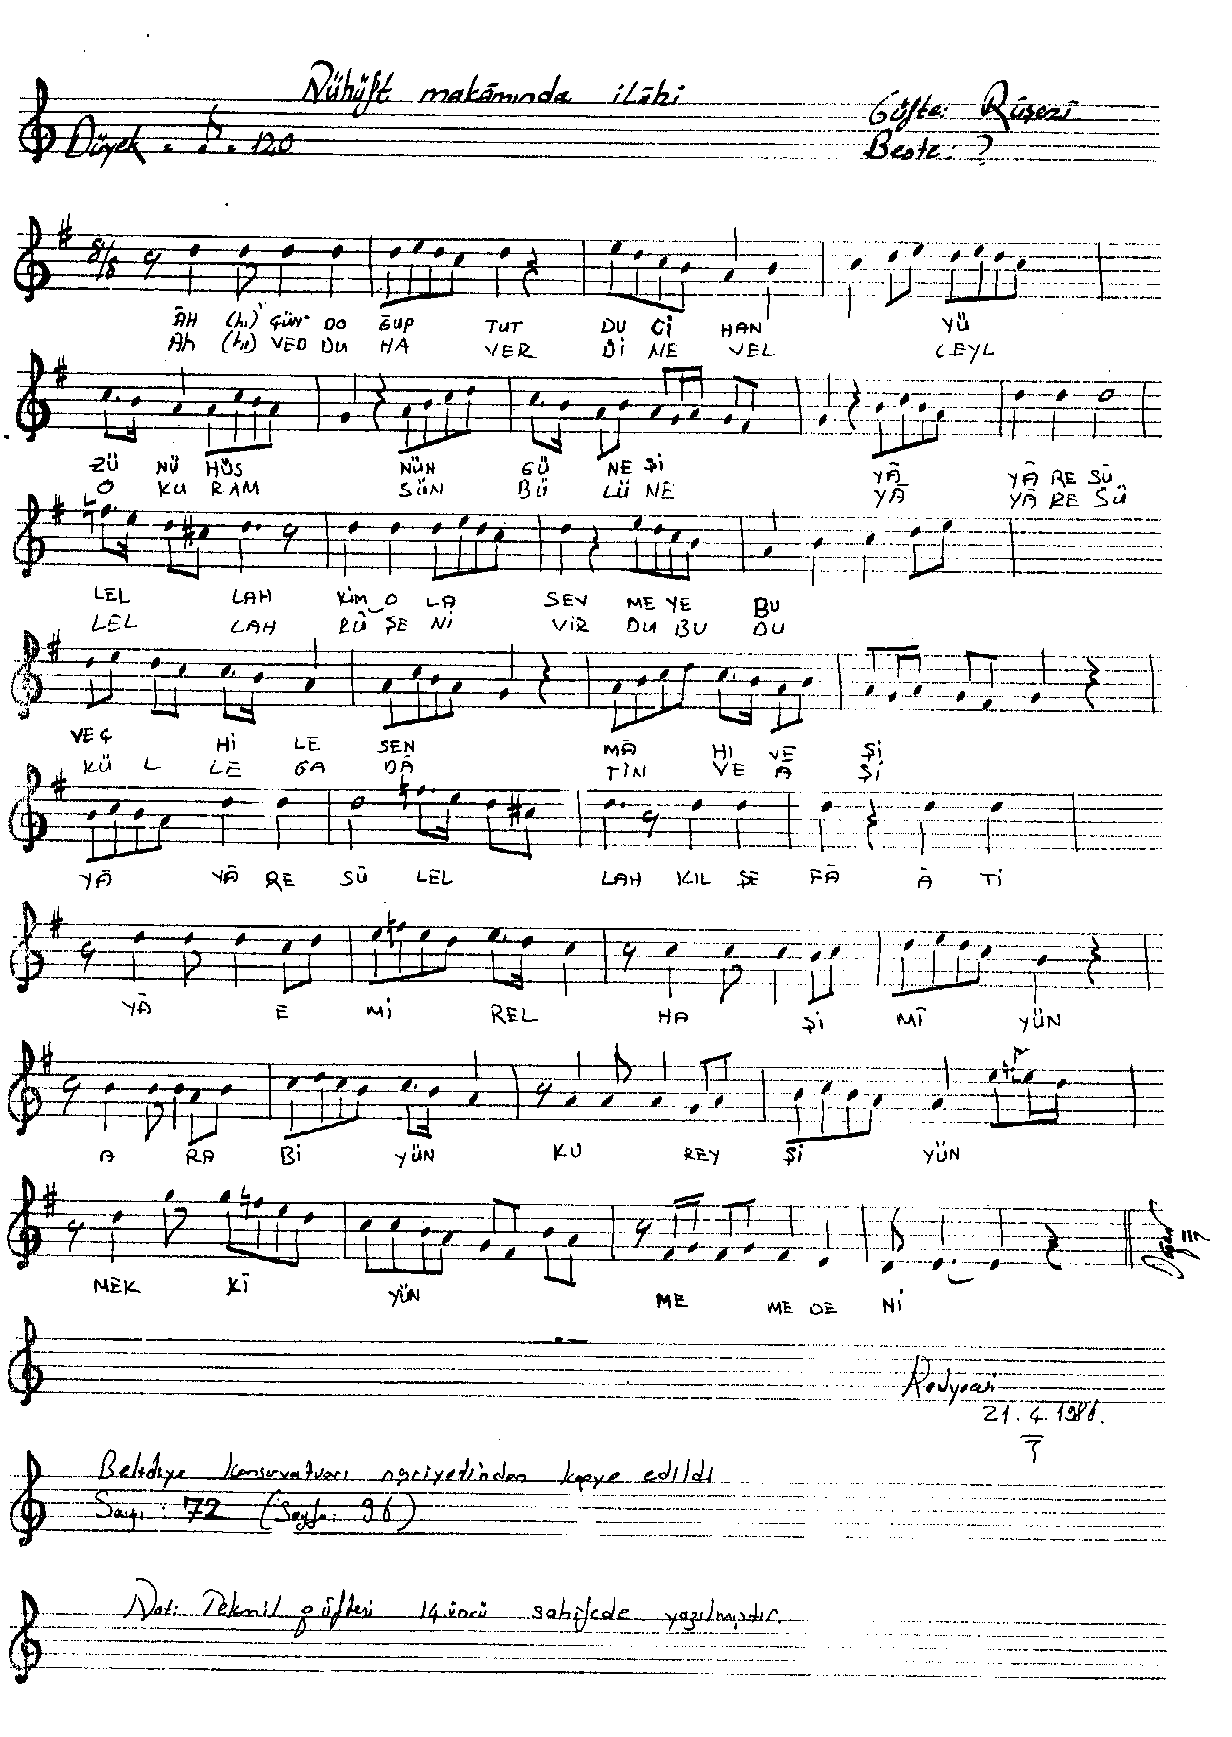 Nühüft makāmında ilāhi
Düyek = ♪ = 120
Güfte: Rûşenî
Beste: ?
8/8
ĀH (hı) GÜN DO ĞUP TUT DU Cİ HAN YÜ
Ah (hı) VED DU HA VER Dİ NE VEL LEYL
ZÜ NÜ HÜS NÜN GÜ NE Şİ YĀ YĀ RE SŪ
O KU RAM SÜN BÜ LÜ NE YĀ YĀ RE SŪ
LEL LAH KİM O LA SEV ME YE BU
LEL LAH RÛ ŞE Nİ VİR DU BU DU
VEÇ Hİ LE SEN MĀ HI VE Şİ
KÜ L LE GA DĀ TİN VE A Şİ
YĀ YĀ RE SŪ LEL LAH KIL ŞE FĀ Ā Tİ
YĀ E Mİ REL HA Şİ Mİ YÜN
A RA Bİ YÜN KU REY Şİ YÜN
MEK Kİ YÜN ME ME DE Nİ
21.4.1981.
Belediye konservatuarı neşriyatından kopye edildi
Sayı: 72 (Sayfa: 36)
Not: Tekmil güftesi 14 üncü sahifede yazılmıştır.